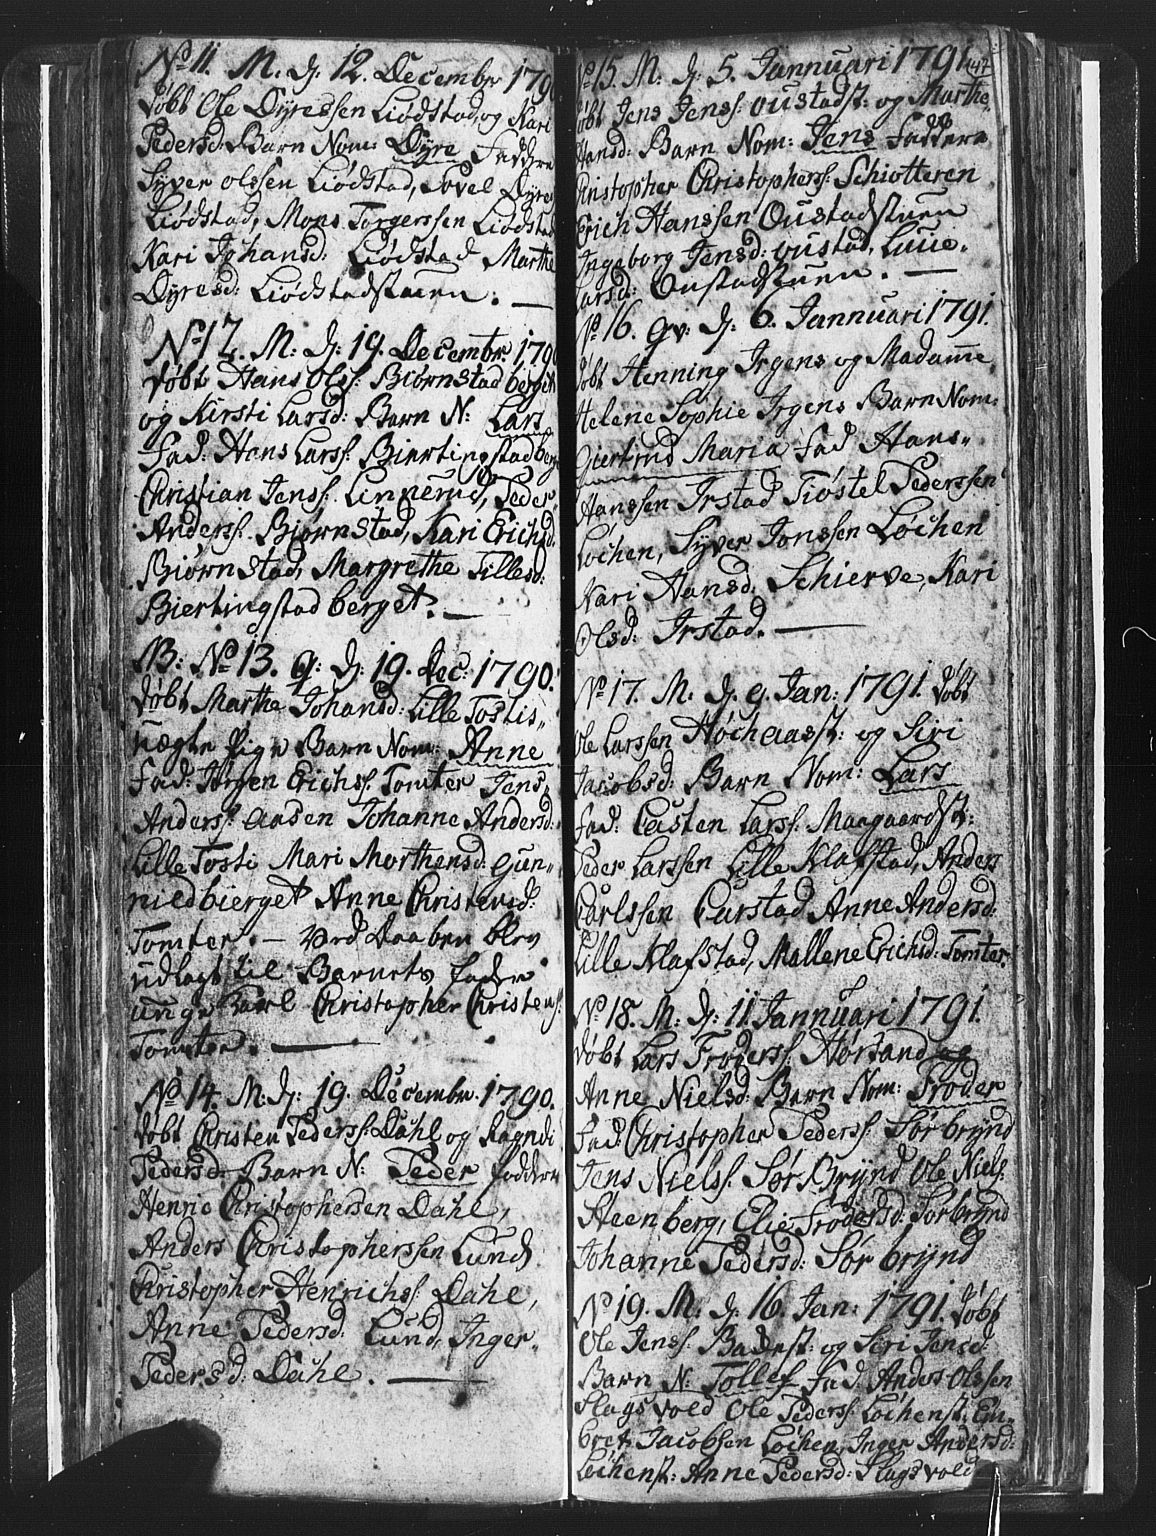 No 11. M. d: 12. Decembr 1790
døbt Ole Dyressen Liødstad, og Kari
Pedersd: Barn Nom: Dyre Faddere
Syver olssen Liødstad, Dyres
Liødstad, Mons Torgerssen Liødstad
Kari Johansd: Liødstad Marthe
Dyresd: Liødstadstuen. —
No 12. M: d: 19. Decembr. 1790
døbt Hans Olss: Biørnstad berget
og Kirsti Larsd: Barn N: Lars
Fad: Hans Larss: Biertingstadberg
Christian Jenss: Linnerud, Peder
Anderss: Biørnstad, Kari Erichsd:
Biørnstad, Margrethe Tillesd:
Biertingstad berget. —
NB: No 13. q: d: 19. Dec: 1790.
døbt Marthe Johansd: Lille Tostis
uægte Pige Barn Nom: Anne
Fad: Jørgen Erichss: Tomter Jens
Anderss: Aasen Johanne Andersd:
Lille Tosti Mari Morthensd: Gun-
nildbierget Anne Christensd:
Tomter. — Ved Daaben blev
udlagt til Barnets Fader
unge Karl Christopher Christens:
Tomter. —
No 14. M: d: 19. Decembr. 1790.
døbt Christen Pederss: Dahl og Ragndi
Pedersd: Barn N: Peder Faddere
Henric Christophersen Dahl,
Anders Christopherssen Lund
Christopher Henrichs: Dahl,
Anne Pedersd: Lund, Inger
Pedersd: Dahl. —
147
No 15. M: d: 5. Jannuari 1791.
døbt Jens Jenss: oustadst: og Marthe
Hansd: Barn Nom: Jens Faddere
Christopher Christopherss: Schiotteren
Erich Hanssen Oustadstuen
Ingeborg Jensd: oustad,
Larsd: Oustadstuen. —
No 16. qv: d: 6. Jannuari 1791.
døbt Henning Irgens og Madame
Helene Sophie Irgens Barn Nom:
Giertrud Maria Fad Hans
Hanssen Irstad Tiøstel Pederssen
Løchen, Syver Jonssen Løchen
Kari Hansd: Schierve, Kari
Olsd: Irstad. —
No 17. M. d. 9. Jan: 1791. døbt
Ole Larssen Høchaasst: og Siri
Jacobsd: Barn Nom: Lars
Fad: Casten Larss: Maagaardst:
Peder Larssen Lille Klafstad, Anders
Carlssen Carstad Anne Andersd:
Lille Klafstad, Mallene Erichsd: Tomter.
No 18. M: d: 11 Jannuari 1791.
døbt Lars Froderss: Hørsand og
Anne Nielsd: Barn Nom: Froder
Fad: Christopher Pederss: Sørbrynd
Jens Nielss: Sør Brynd Ole Niels:
Steenberg, Elie Frodersd: Sørbrynd
Johanne Pedersd: Sør brynd
No 19. M. d: 16. Jan: 1791. døbt
Ole Jenss: Badest: og Siri Jensd:
Barn N: Tollef Fad. Anders Olssen
Slagsvold Ole Pederss: Løchenst: Em-
bret Jacobsen Løchen, Inger Andersd:
Løchenst: Anne Pedersd: Slagsvold